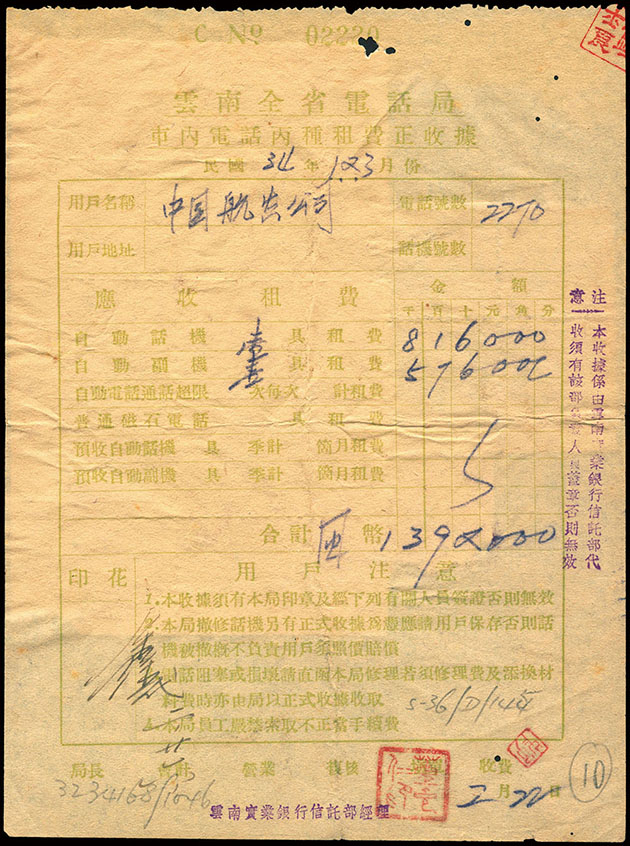 C No 02220
雲南全省電話局
市內電話各種租費正收據
民國 34 年 1.2.3 月份
用戶名稱 中国航空公司 電話號數 2270
用戶地址 話機號數
應收租費 金額
千百十元角分
自動話機 壹 具租費 816000
自動副機 壹 具租費 576000
自動電話通話超限 次每次 計租費
普通磁石電話 具租費
預收自動話機 具 季計 箇月租費
預收自動副機 具 季計 箇月租費
合計 国幣 1392000
印花 用戶注意
1.本收據須有本局印章及經下列有關人員簽證否則無效
2.本局撤修話機另有正式收據為憑應請用戶保存否則話
機被撤概不負責用戶須照價賠償
話阻塞或損壞請直函本局修理若須修理費及添換材
料費時亦由局以正式收據收取
4.本局員工嚴禁索取不正當手續費
S-36/D/145
局長 會計 營業 復核 收費
3234168/1046
二月 22 日
10
雲南實業銀行信託部經理
注意
本收據係由雲南實業銀行信託部代
收須有該部負責人員蓋章否則無效